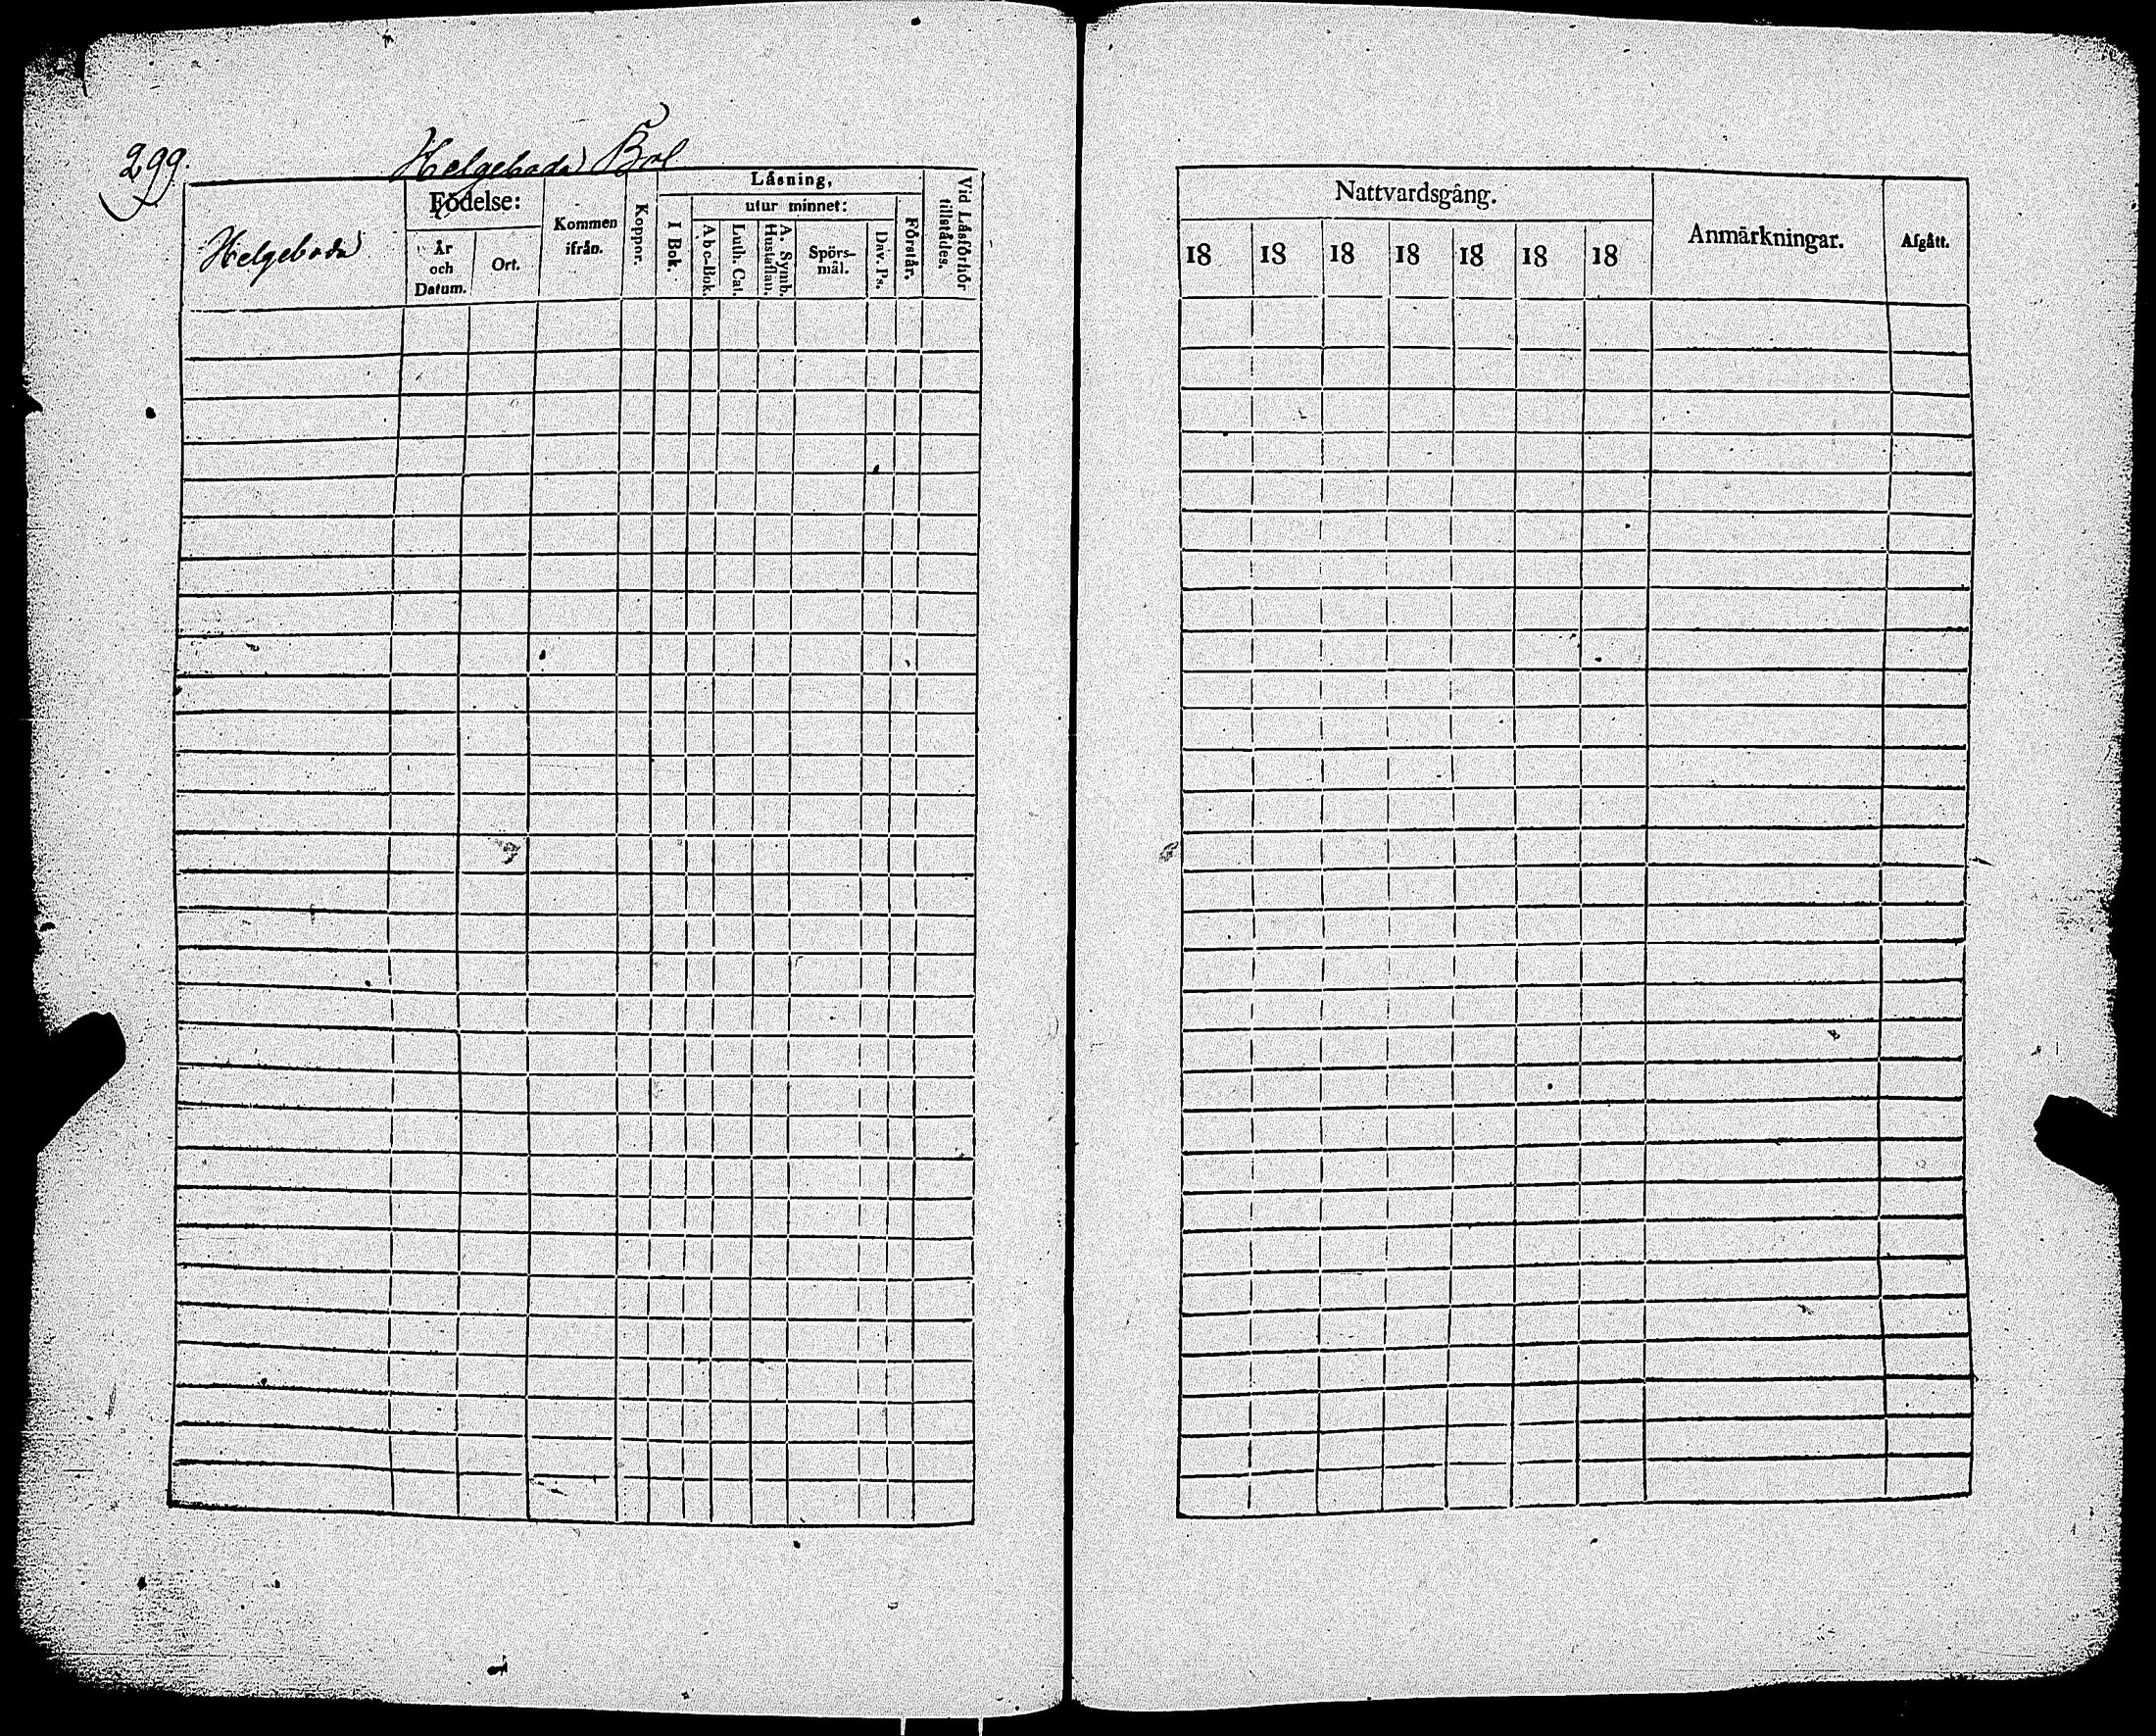 299.
Helgeboda Bol
Helgeboda
Födelse:
År
och
Datum.
Ort.
Kommen
ifrån.
Koppor.
Läsning,
I Bok.
utur minnet:
Abc-Bok.
Luth. Cat.
A. Symb.
Hustaflan.
Spörs-
mål.
Dav. Ps.
Förstår.
Vid Läsförhör
tillstädes.
Nattvardsgång.
18 18 18 18 18 18 18
Anmärkningar.
Afgått.